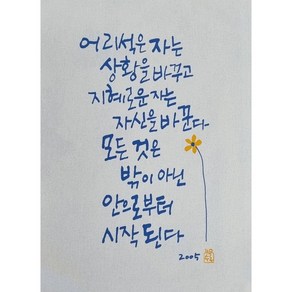 어리석은 자는
상황을 바꾸고
지혜로운 자는
자신을 바꾼다
모든 것은
밖이 아닌
안으로부터
시작된다
2005